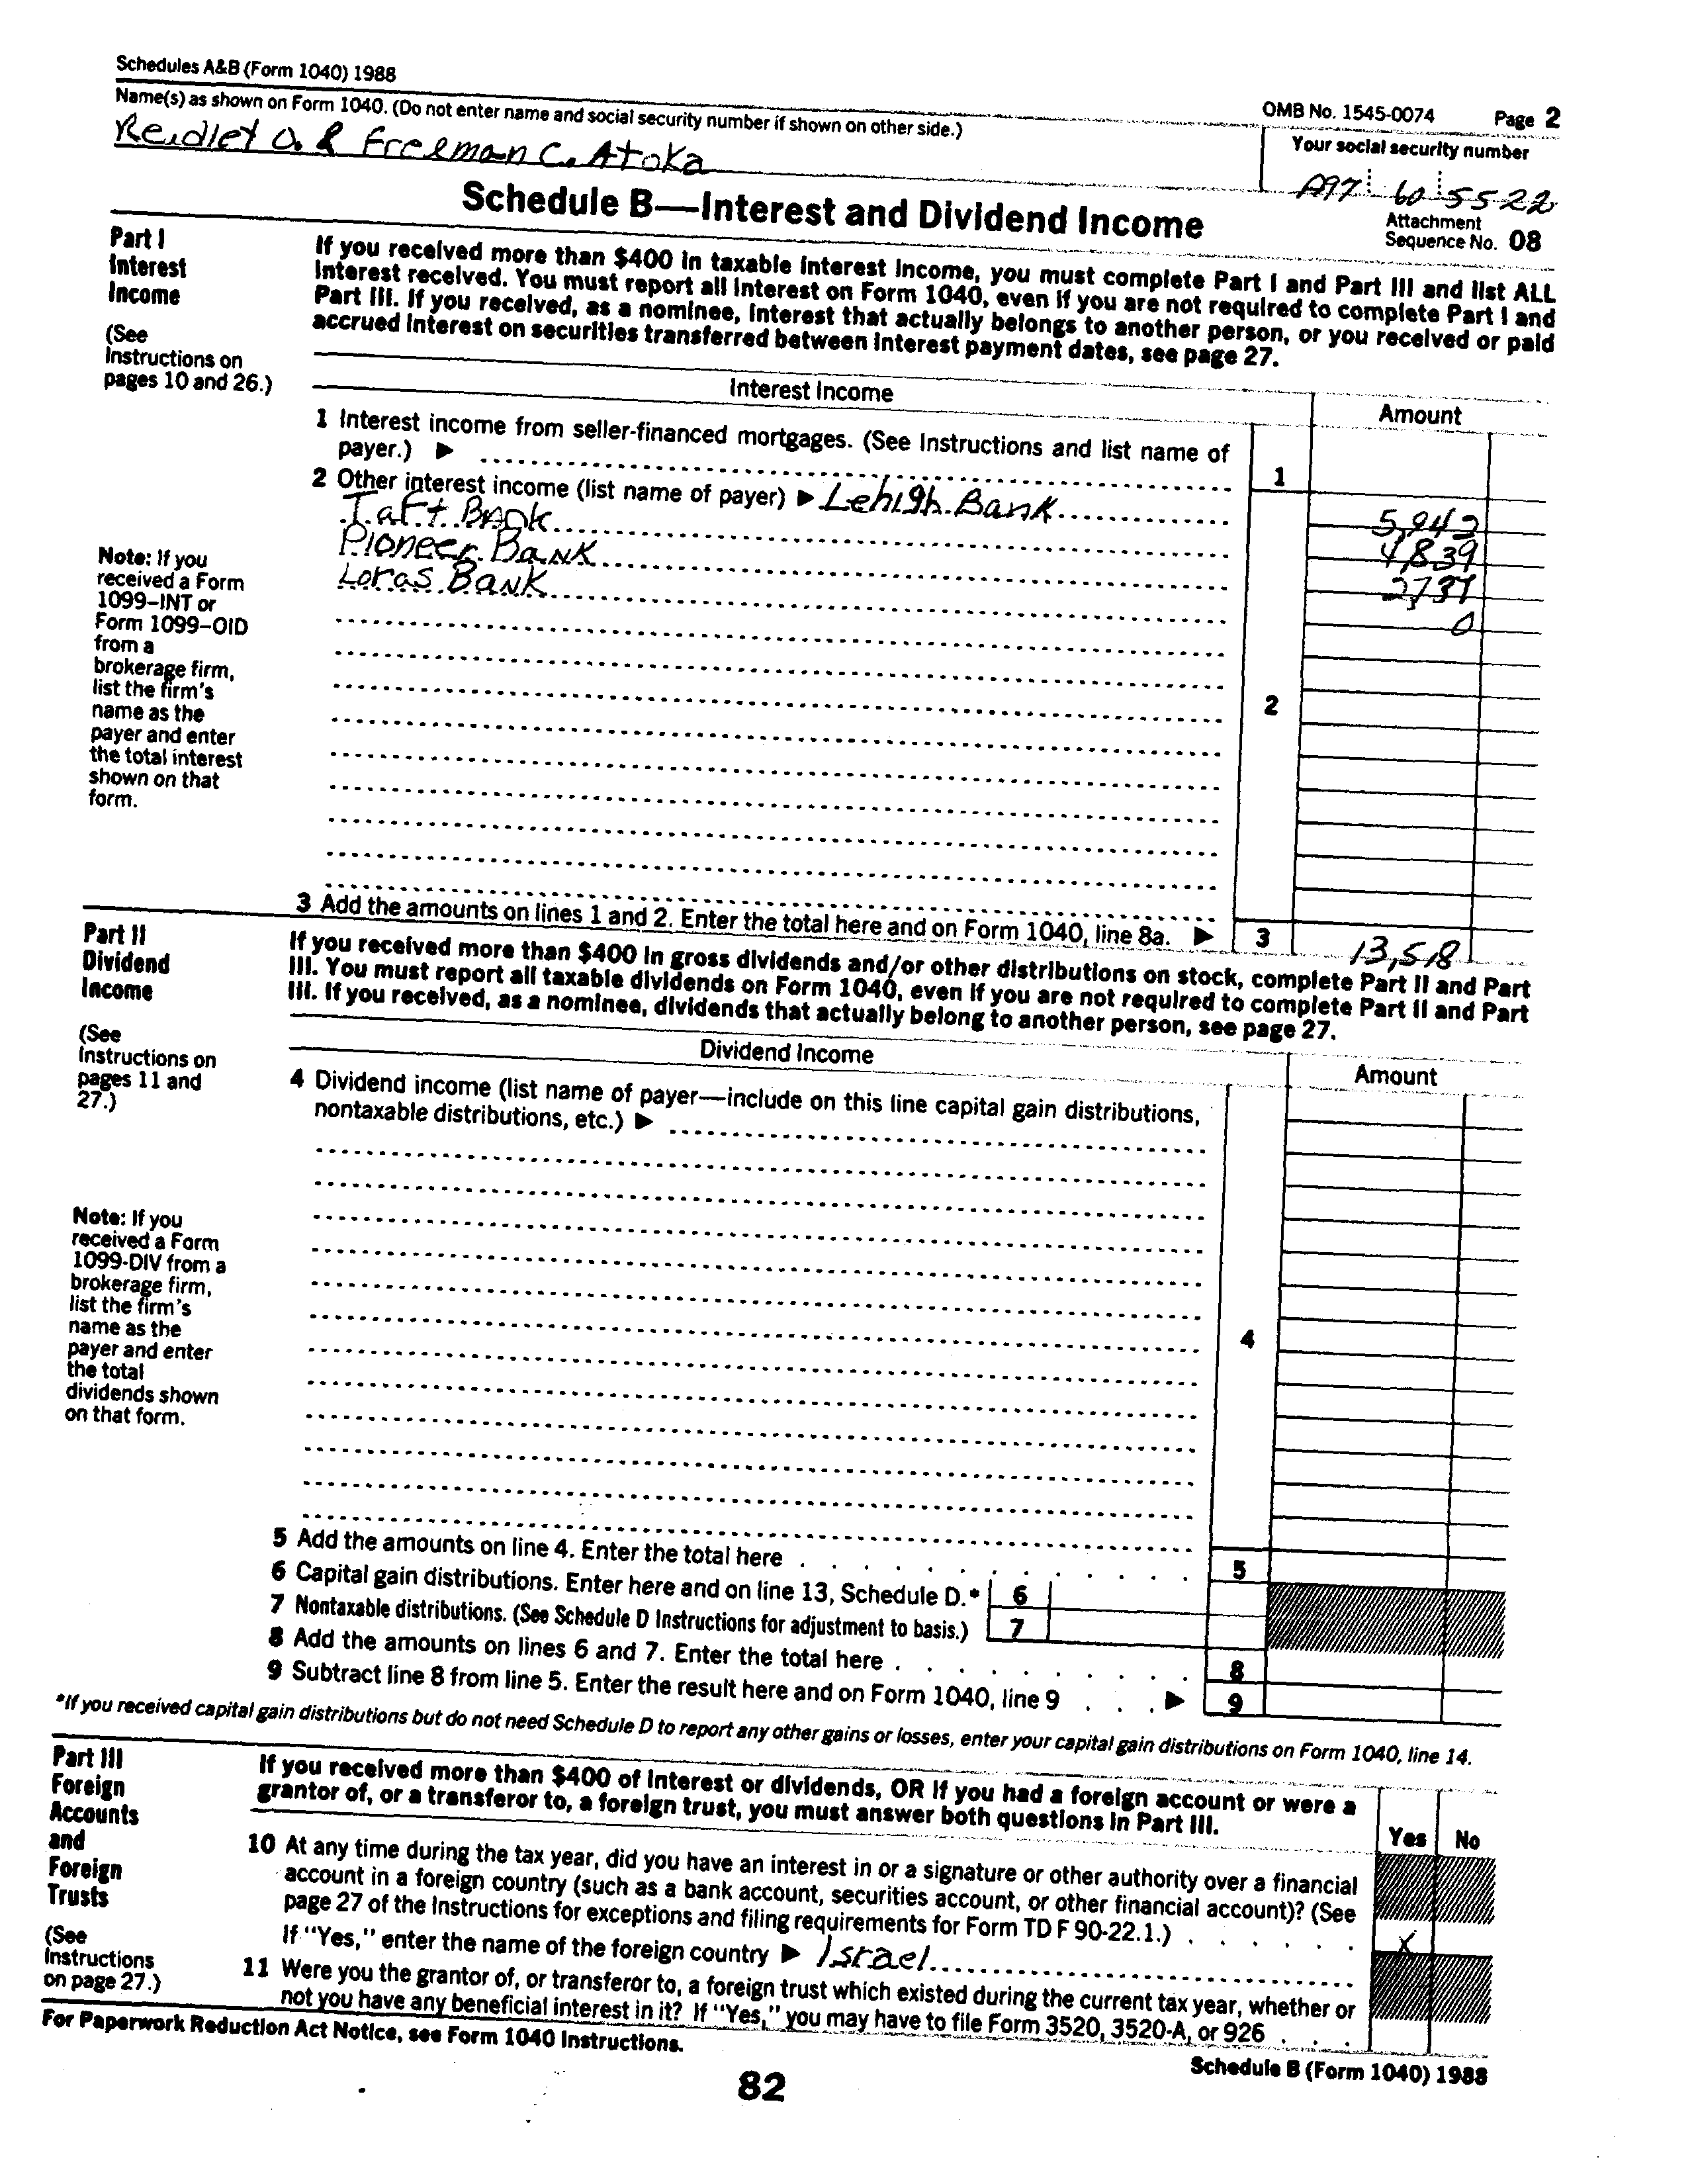 Schedules A&B (Form 1040) 1988
OMB No. 1545-0074 Page 2
Name(s) as shown on Form 1040. (Do not enter name and social security number if shown on other side.)
Your social security number
Reidlet O. & Freeman C. Atoka
60 5522
Schedule B—Interest and Dividend Income
Attachment
Sequence No. 08
Part I
Interest
Income
(See
Instructions on
pages 10 and 26.)
If you received more than $400 in taxable interest income, you must complete Part I and Part III and list ALL
interest received. You must report all interest on Form 1040, even if you are not required to complete Part I and
Part III. If you received, as a nominee, interest that actually belongs to another person, or you received or paid
accrued interest on securities transferred between interest payment dates, see page 27.
Interest Income
Amount
1 Interest income from seller-financed mortgages. (See Instructions and list name of
payer.) ▶
1
2 Other interest income (list name of payer) ▶ Lehigh Bank
5,942
Taft Bank
4,839
Pioneer Bank
2,737
Loras Bank
0
Note: If you
received a Form
1099–INT or
Form 1099–OID
from a
brokerage firm,
list the firm's
name as the
payer and enter
the total interest
shown on that
form.
2
3 Add the amounts on lines 1 and 2. Enter the total here and on Form 1040, line 8a. ▶ 3 13,518
Part II
Dividend
Income
(See
Instructions on
pages 11 and
27.)
If you received more than $400 in gross dividends and/or other distributions on stock, complete Part II and Part
III. You must report all taxable dividends on Form 1040, even if you are not required to complete Part II and Part
III. If you received, as a nominee, dividends that actually belong to another person, see page 27.
Dividend Income
Amount
4 Dividend income (list name of payer—include on this line capital gain distributions,
nontaxable distributions, etc.) ▶
Note: If you
received a Form
1099-DIV from a
brokerage firm,
list the firm's
name as the
payer and enter
the total
dividends shown
on that form.
4
5 Add the amounts on line 4. Enter the total here 5
6 Capital gain distributions. Enter here and on line 13, Schedule D.* 6
7 Nontaxable distributions. (See Schedule D Instructions for adjustment to basis.) 7
8 Add the amounts on lines 6 and 7. Enter the total here 8
9 Subtract line 8 from line 5. Enter the result here and on Form 1040, line 9 ▶ 9
*If you received capital gain distributions but do not need Schedule D to report any other gains or losses, enter your capital gain distributions on Form 1040, line 14.
Part III
Foreign
Accounts
and
Foreign
Trusts
(See
Instructions
on page 27.)
If you received more than $400 of interest or dividends, OR if you had a foreign account or were a
grantor of, or a transferor to, a foreign trust, you must answer both questions in Part III.
Yes No
10 At any time during the tax year, did you have an interest in or a signature or other authority over a financial
account in a foreign country (such as a bank account, securities account, or other financial account)? (See
page 27 of the Instructions for exceptions and filing requirements for Form TD F 90-22.1.) X
If "Yes," enter the name of the foreign country ▶ Israel
11 Were you the grantor of, or transferor to, a foreign trust which existed during the current tax year, whether or
not you have any beneficial interest in it? If "Yes," you may have to file Form 3520, 3520-A, or 926
For Paperwork Reduction Act Notice, see Form 1040 Instructions.
Schedule B (Form 1040) 1988
82